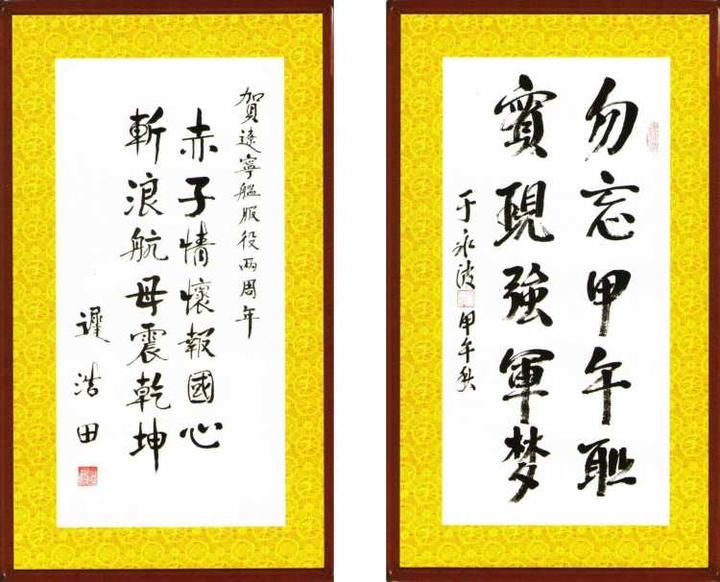 賀遼寧艦服役兩周年
赤子情懷報國心
斬浪航母震乾坤
遲浩田
勿忘甲午恥
實現強軍夢
于永波
甲午秋